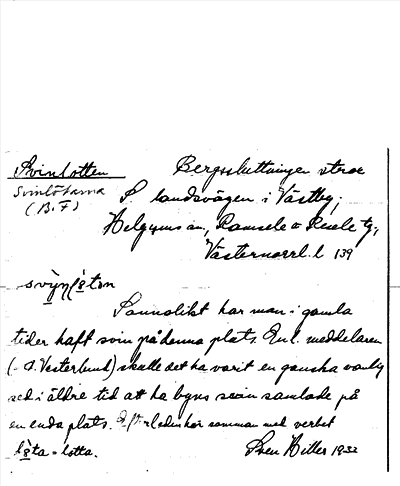 Svinlotten Bergssluttningen strax
Svinlötarna S. landsvägen i Västby,
(B.F.)
Helgums sn, Ramsele o Resele tg,
Västernorrl. l 139
Sannolikt har man i gamla
tider haft svin på denna plats. Enl. meddelaren
(- O. Vesterlund) skulle det ha varit en ganska vanlig
sed i äldre tid att ha byns svin samlade på
en enda plats. Efterleden har samman med verbet
- lotta. Sven Hitter 1932